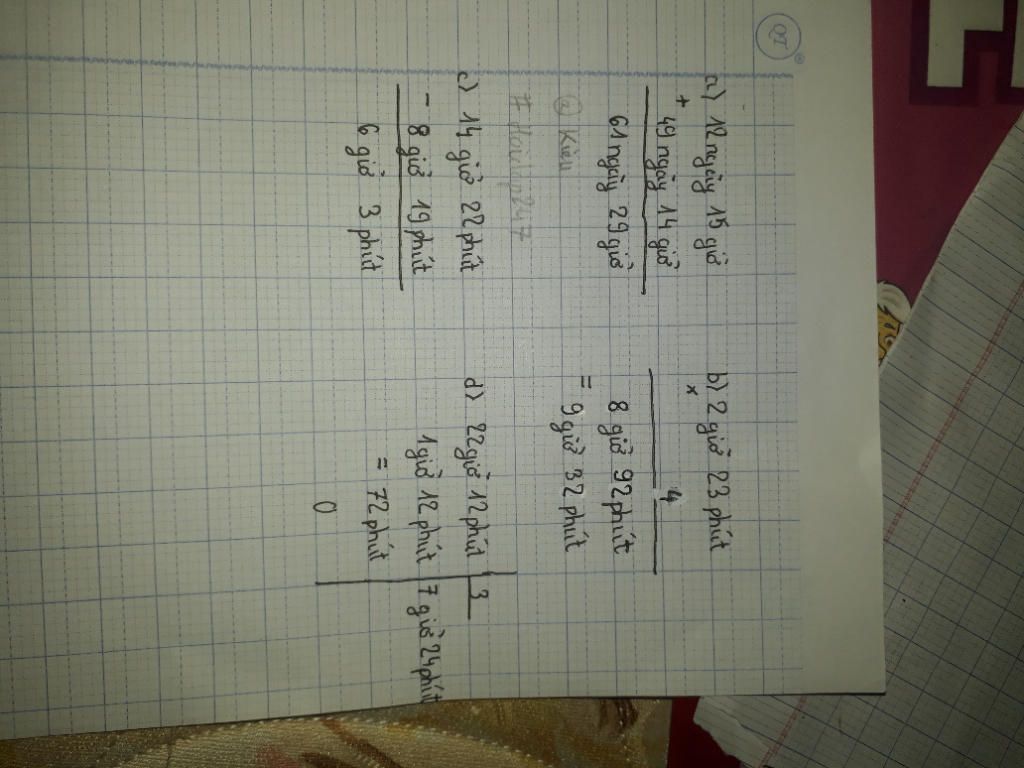 a) 12 ngày 15 giờ
+
49 ngày 14 giờ
61 ngày 29 giờ
b) 2 giờ 23 phút
x
4
8 giờ 92 phút
= 9 giờ 32 phút
@ Kiều
c) 14 giờ 22 phút
-
8 giờ 19 phút
6 giờ 3 phút
d) 22 giờ 12 phút 3
1 giờ 12 phút 7 giờ 24 phút
= 72 phút
0